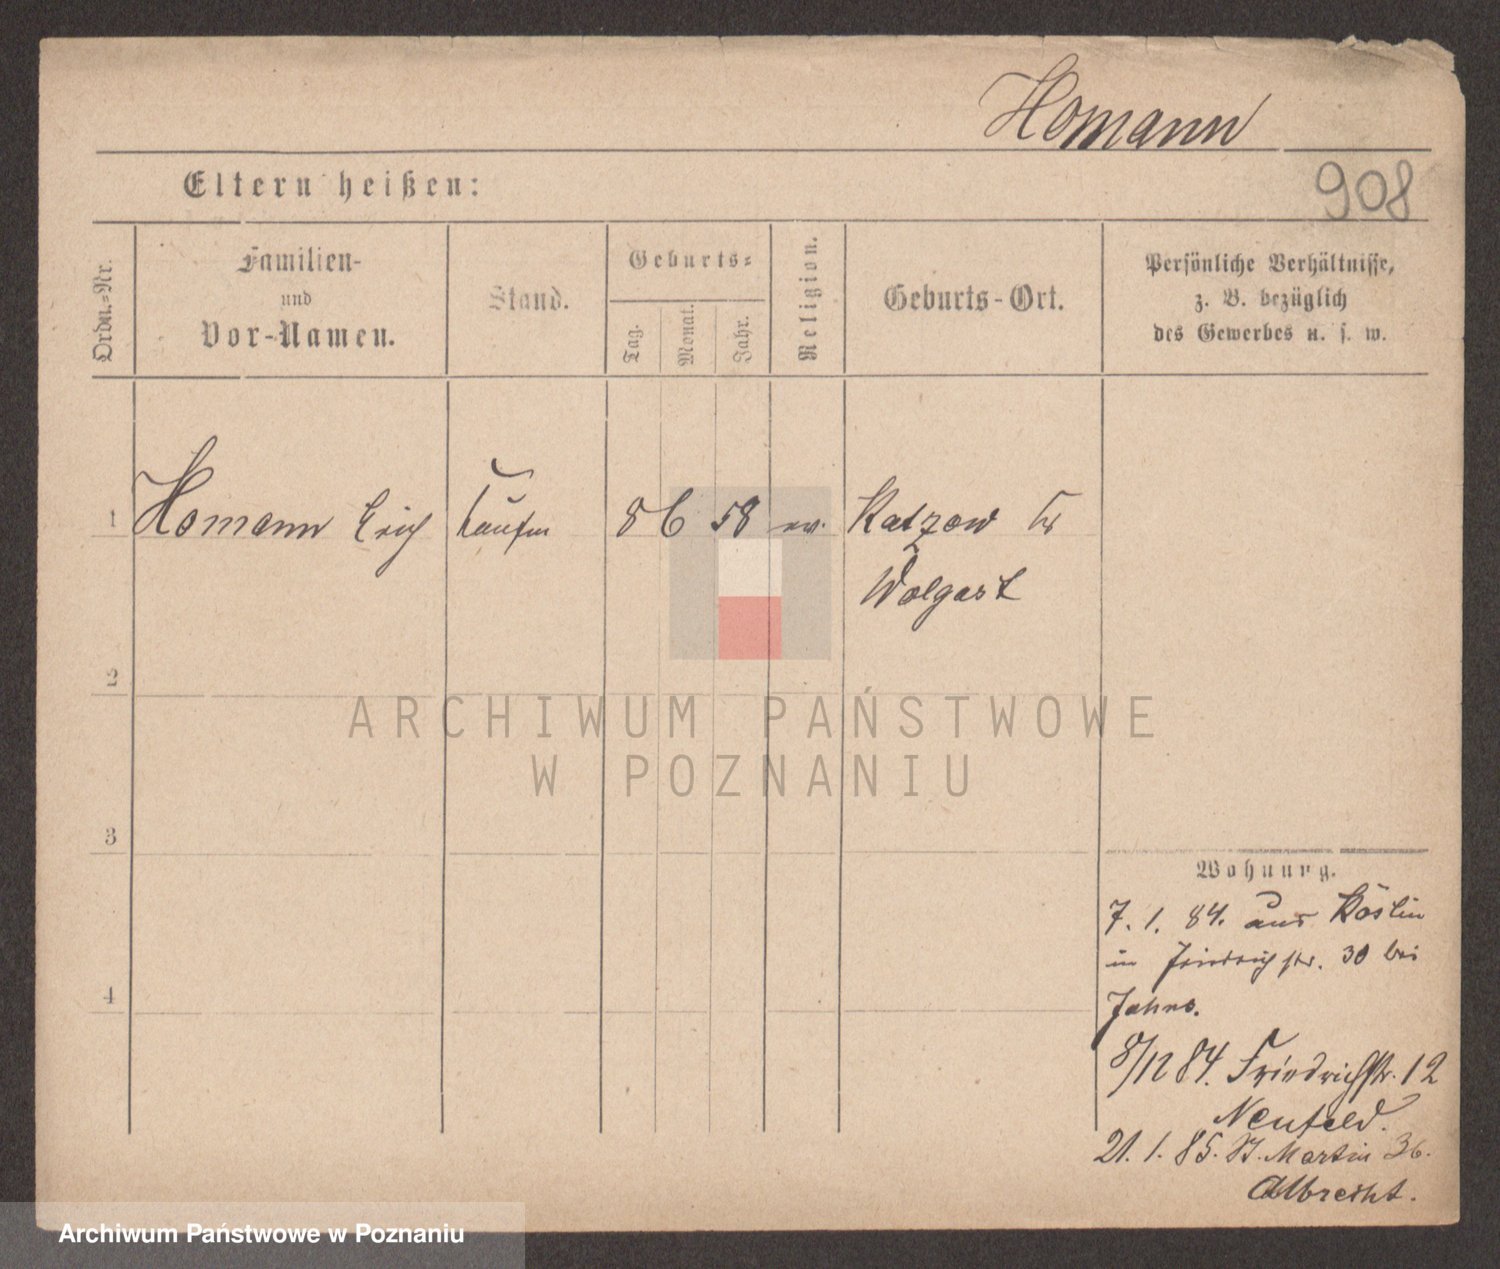 Homann
908
Eltern heißen:
Ordn.-Nr.
Familien-
und
Vor-Namen.
Stand.
Geburts-
Tag.
Monat.
Jahr.
Religion.
Geburts-Ort.
Persönliche Verhältnisse,
z. B. bezüglich
des Gewerbes u. s. w.
1 Homann Erich Kaufm 8 6 58 ev. Katzow Kr
Wolgast
2
3
4
ARCHIWUM PAŃSTWOWE
W POZNANIU
Wohnung.
7. 1. 84. aus Köslin
in Friedrichstr. 30 bei
Jahns.
8/12 84. Friedrichstr. 12
Neufeld.
21. 1. 85. St. Martin 36.
Albrecht.
Archiwum Państwowe w Poznaniu